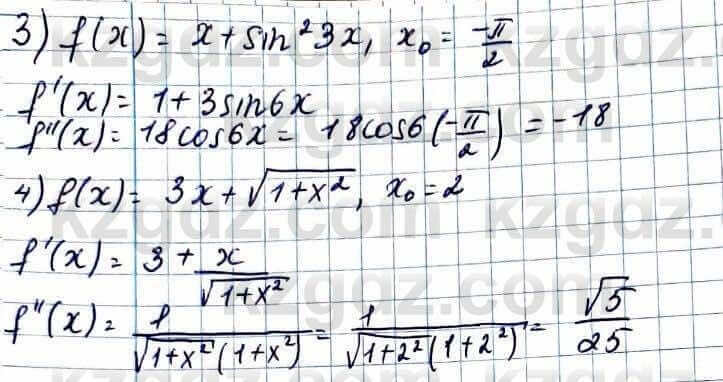 3) f(x) = x + sin²3x, x₀ = -π/2
f'(x) = 1 + 3sin6x
f''(x) = 18cos6x = 18cos6(-π/2) = -18
4) f(x) = 3x + √(1+x²), x₀ = 2
f'(x) = 3 + x/√(1+x²)
f''(x) = 1/(√(1+x²)(1+x²)) = 1/(√(1+2²)(1+2²)) = √5/25